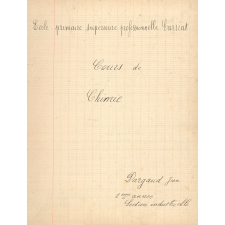 Ecole primaire supérieure professionnelle Carriat
Cours de
Chimie
Dargaud Jean
2ème année
Section industrielle